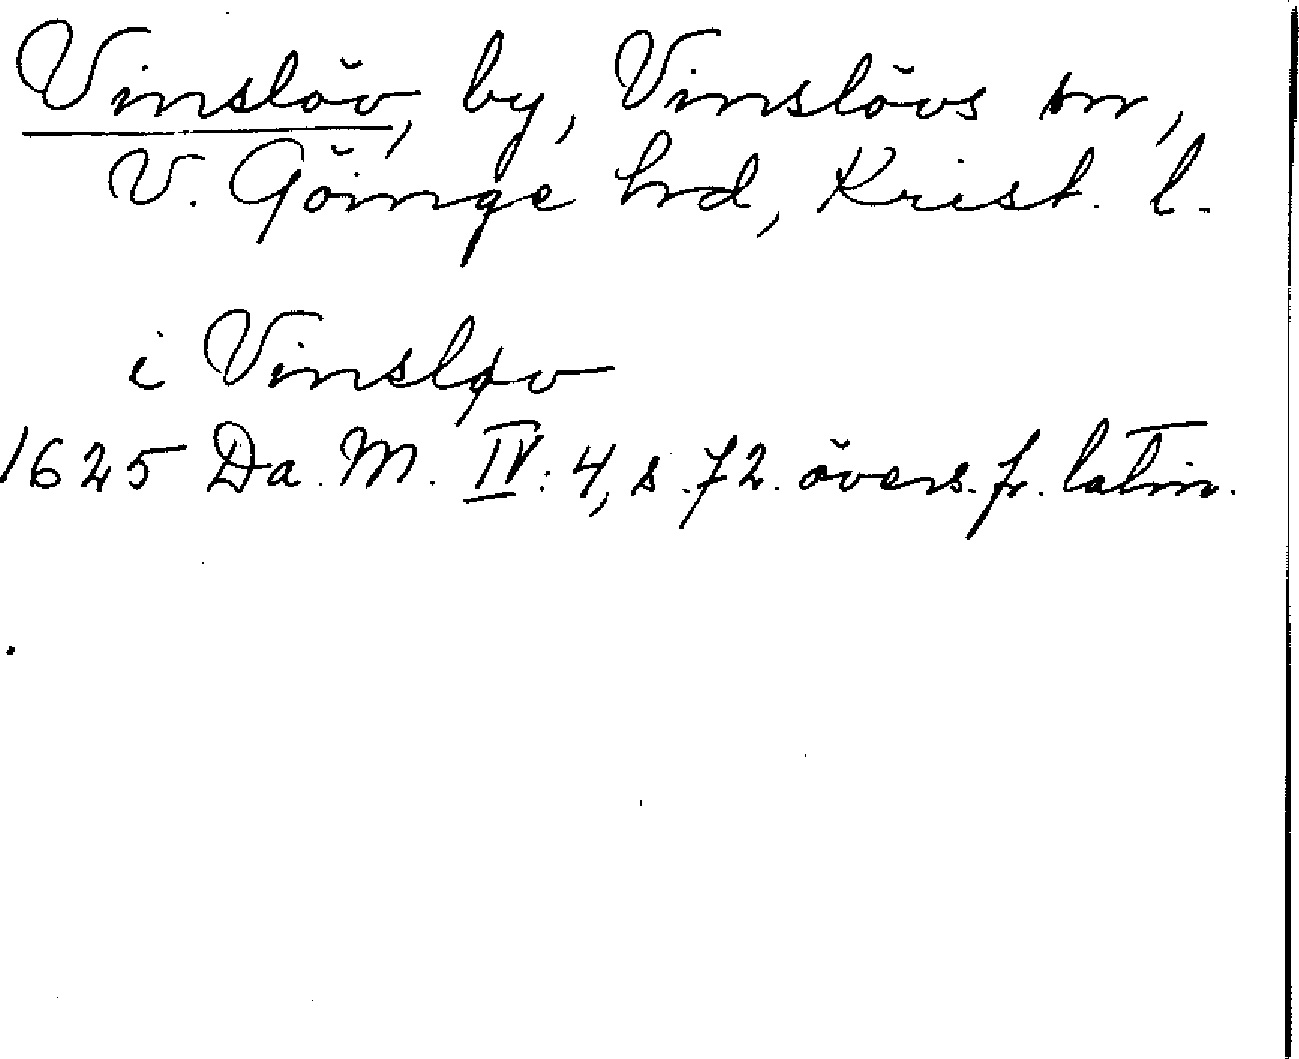 Vinslöv, by, Vinslövs sn,
V. Göinge hrd, Krist. l.
i Vinsløv
1625 Da. M. IV: 4, s. 72. övers. fr. latin.